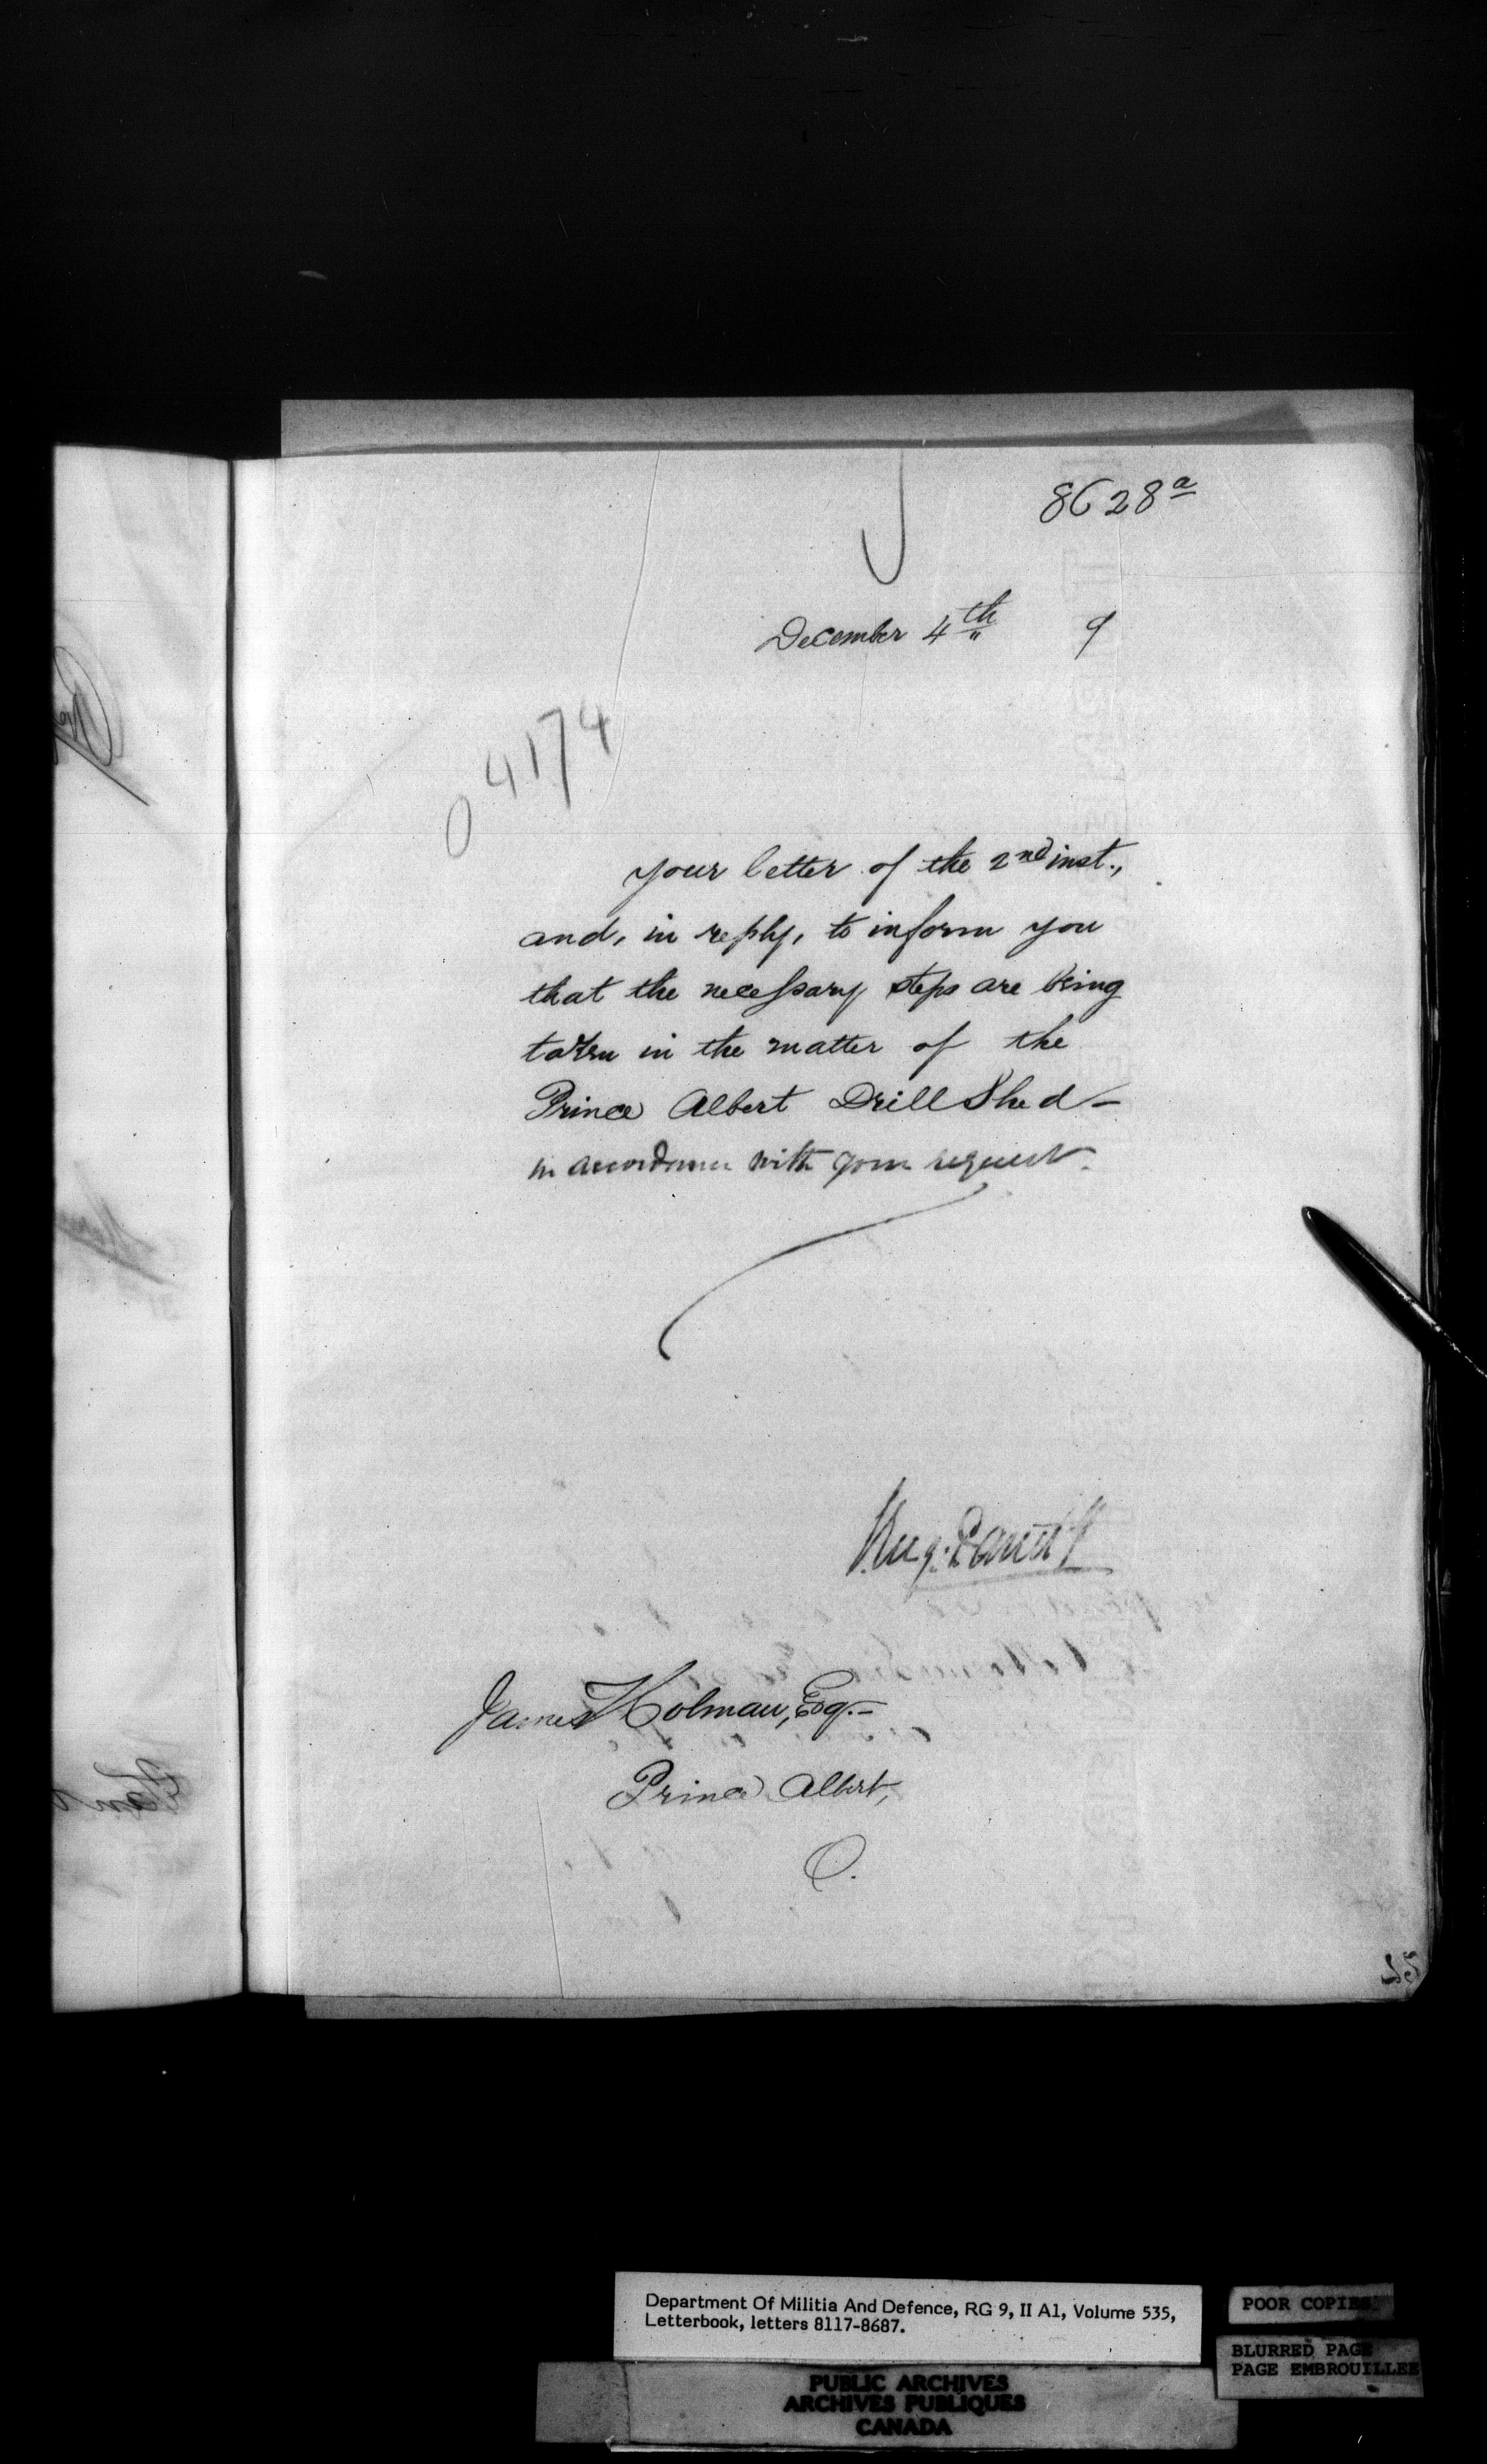 8628a
December 4th 9
04174
your letter of the 2nd inst.,
and, in reply, to inform you
that the necessary steps are being
taken in the matter of the
Prince Albert Drill Shed –
in accordance with your request.
James Holman, Esq.–
Prince Albert,
O.
Department Of Militia And Defence, RG 9, II A1, Volume 535,
Letterbook, letters 8117-8687.
POOR COPIES
BLURRED PAGE
PAGE EMBROUILLEE
PUBLIC ARCHIVES
ARCHIVES PUBLIQUES
CANADA